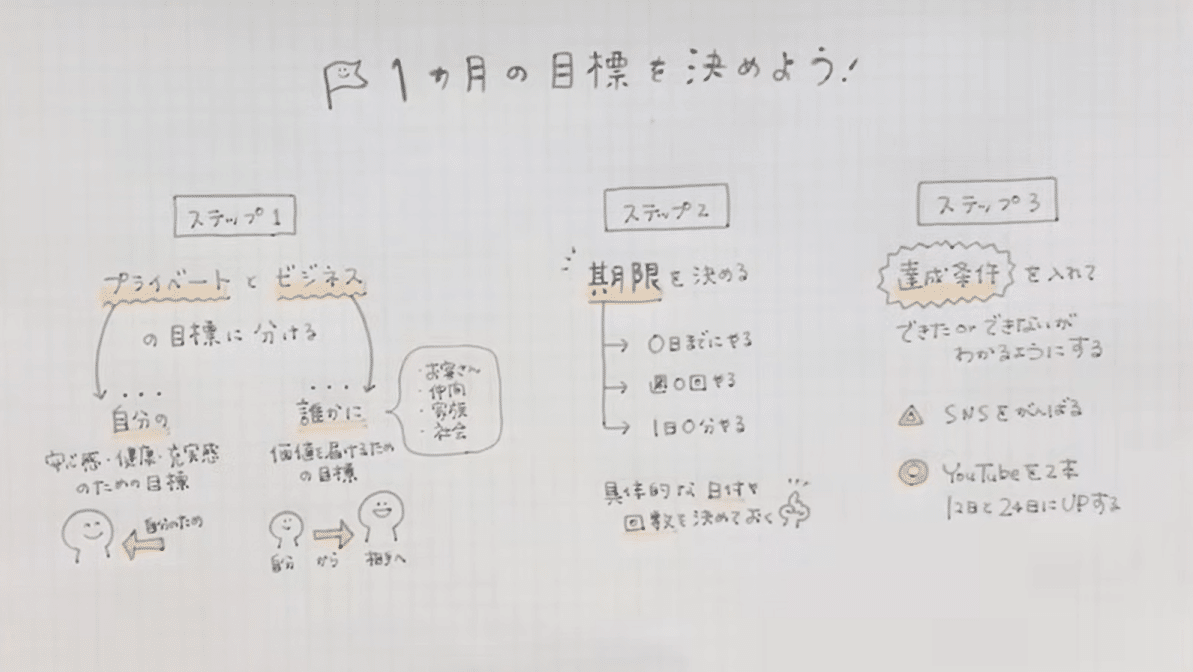 1ヵ月の目標を決めよう!
ステップ1
プライベートとビジネス
の目標に分ける
自分の
安心感・健康・充実感
のための目標
自分のため
誰かに
価値を届けるため
の目標
・お客さん
・仲間
・家族
・社会
自分 から 相手へ
ステップ2
期限を決める
→ 〇日までにやる
→ 週〇回やる
→ 1日〇分やる
具体的な日付や
回数を決めておく
ステップ3
達成条件を入れて
できたorできないが
わかるようにする
△ SNSをがんばる
◎ YouTubeを2本
12日と24日にUPする